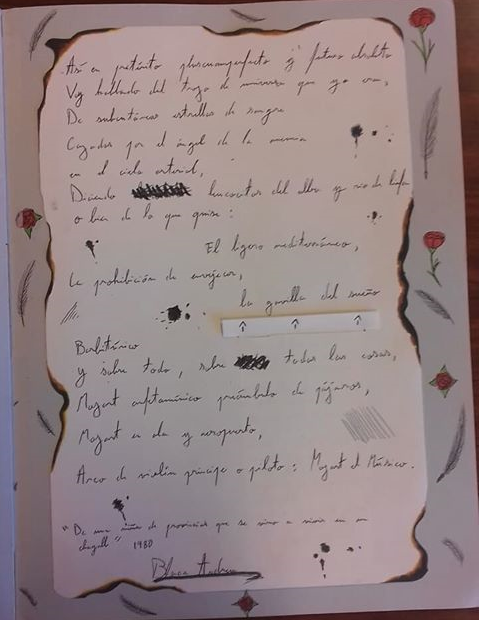 Así en pretérito pluscuamperfecto y futuro absoluto
Voy hablando del trozo de universo que yo era,
De subcutáneas estrellas de sangre
Cazadas por el ángel de la anemia
en el cielo arterial,
Diciendo leucocitos del alba y río de linfa
o bien de lo que quise:
El ligero mediterráneo,
La prohibición de envejecer,
la gacela del sueño
Barbitúrico
Y sobre todo, sobre todas las cosas,
Mozart anfetamínico preámbulo de pájaros,
Mozart en ala y aeropuerto,
Arco de violín príncipe o piloto: Mozart el Músico.
"De una niña de provincias que se vino a vivir en un
chagall" 1980
Blanca Andreu